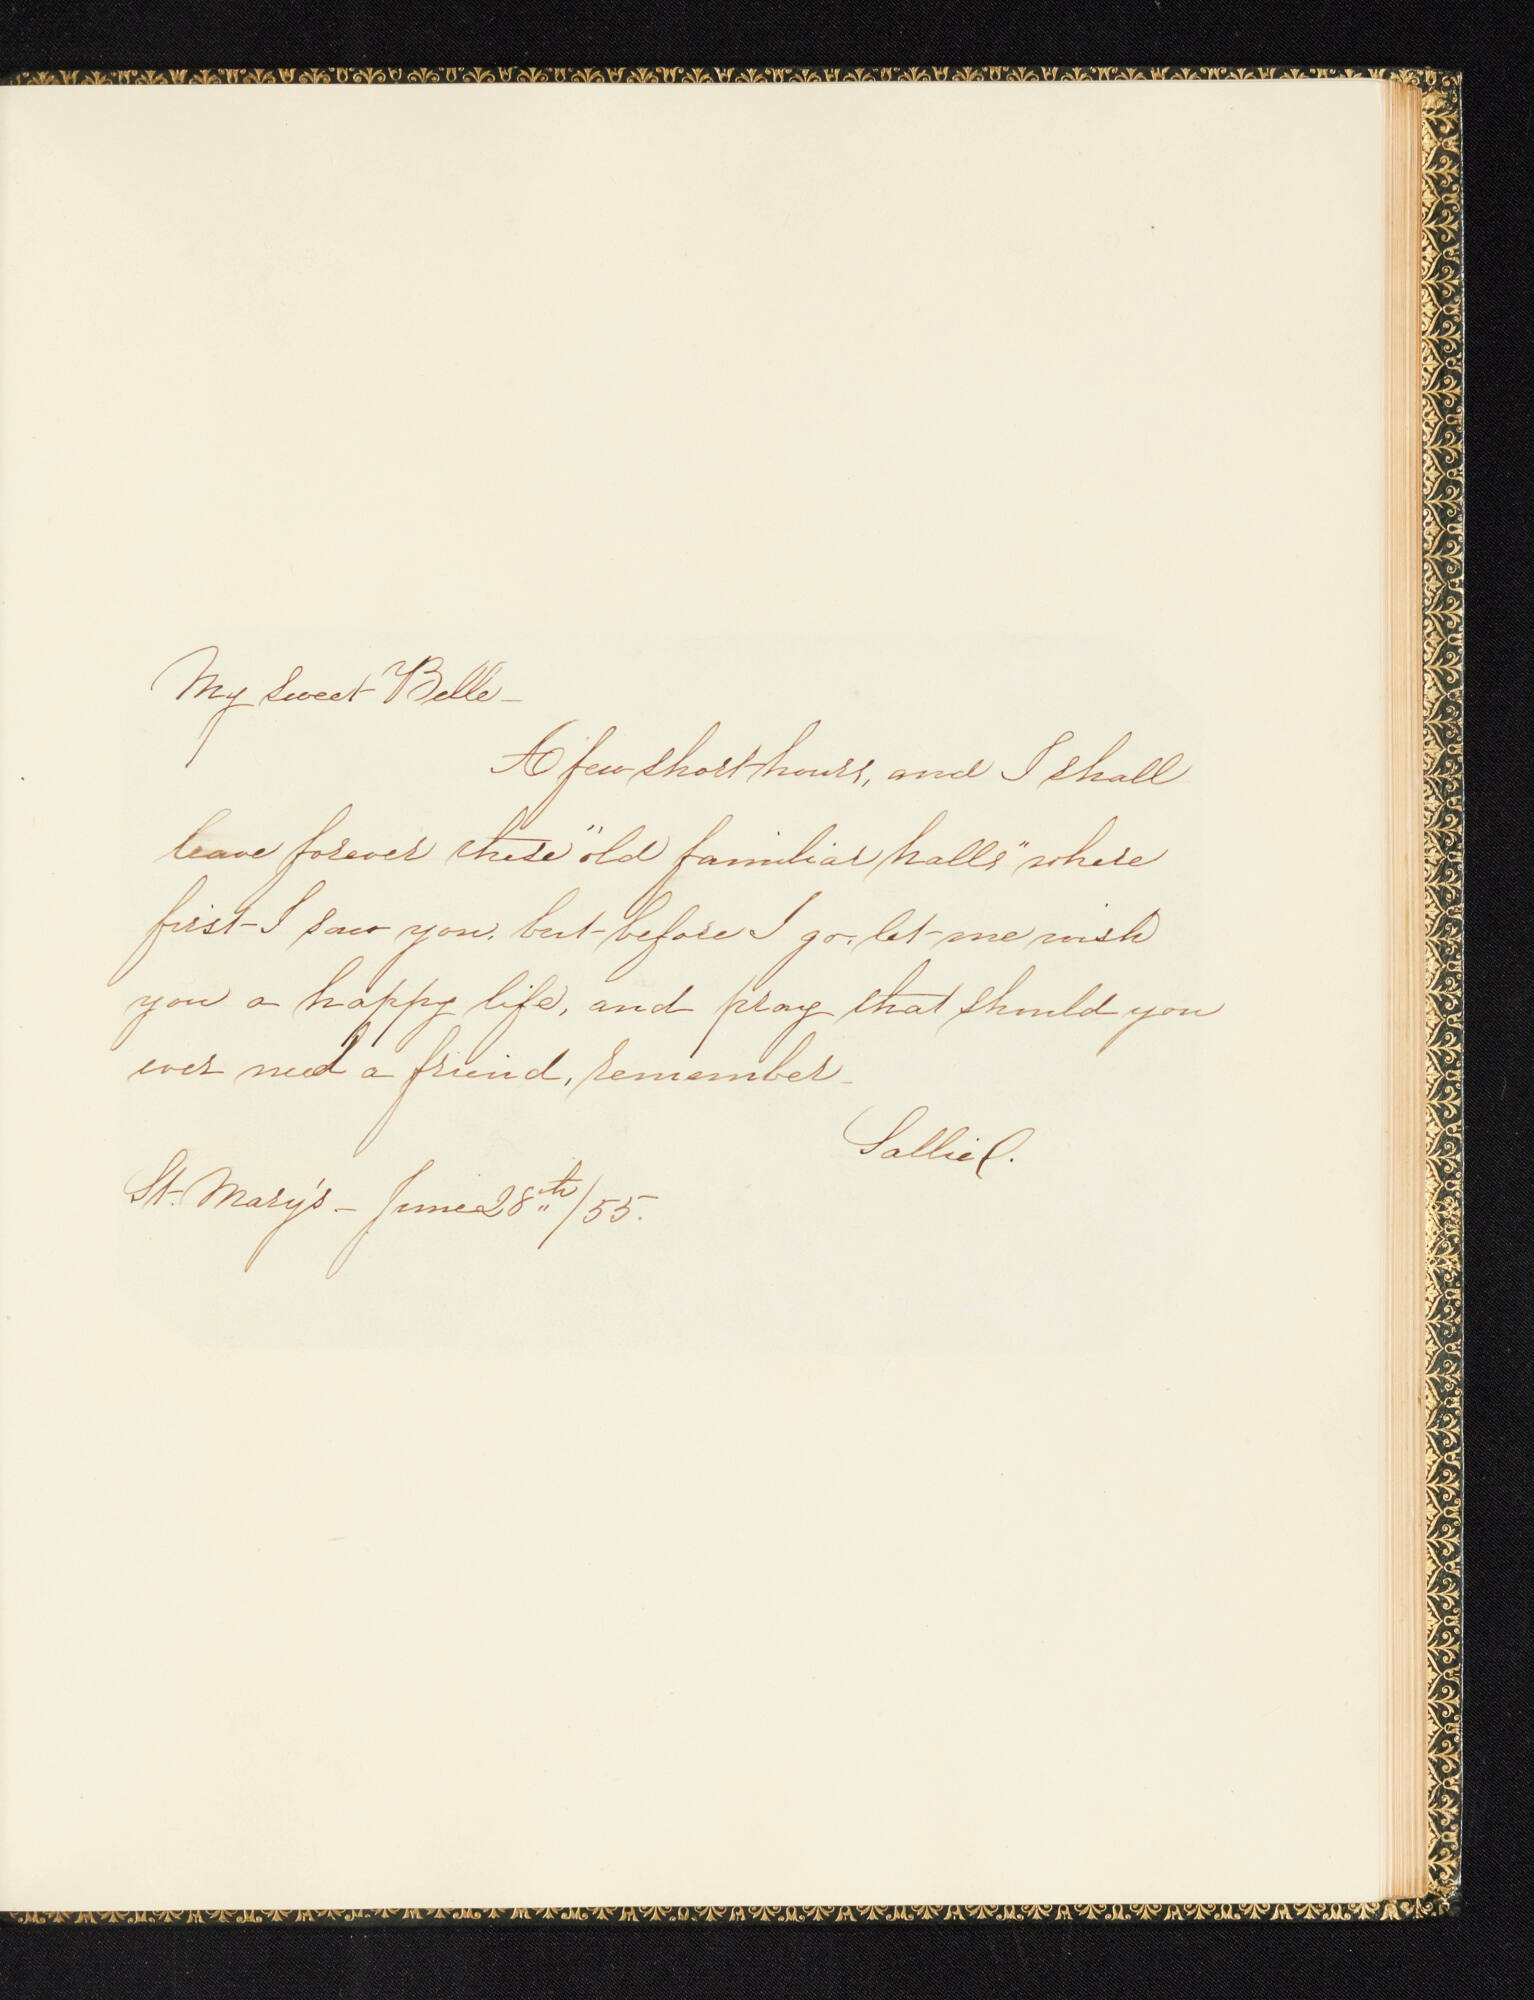 My sweet Belle -
A few short hours, and I shall
leave forever these "old familiar halls" where
first I saw you, but before I go, let me wish
you a happy life, and pray that should you
ever need a friend, remember -
Sallie C.
St. Mary's - June 28th/55.